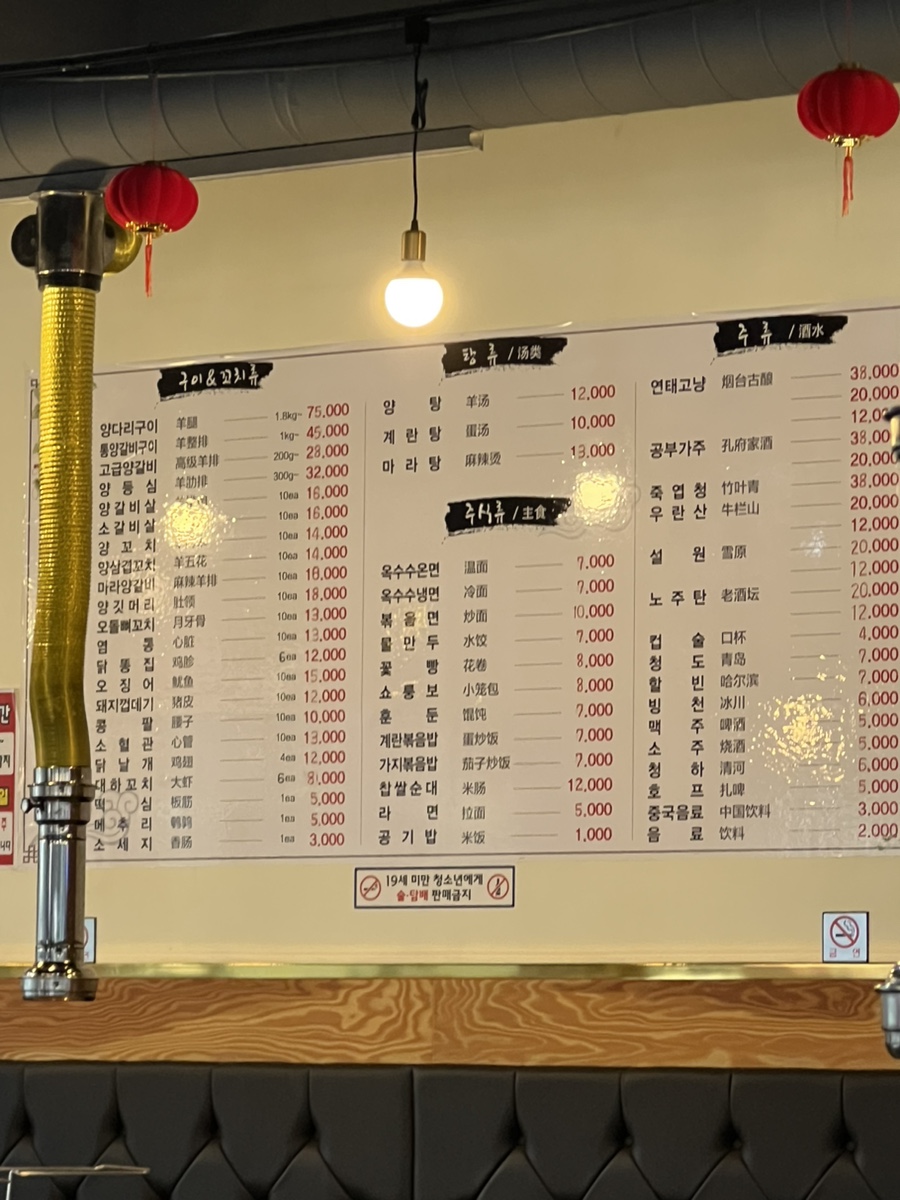 구이&꼬치류
양다리구이 羊腿 1.8kg~ 75,000
통양갈비구이 羊整排 1kg~ 45,000
고급양갈비 高级羊排 200g~ 28,000
양등심 羊肋排 300g~ 32,000
양갈비살 10ea 16,000
소갈비살 10ea 16,000
양꼬치 10ea 14,000
양삼겹꼬치 羊五花 10ea 14,000
마라양갈비 麻辣羊排 10ea 18,000
양깃머리 肚领 10ea 18,000
오돌뼈꼬치 月牙骨 10ea 13,000
염통 心脏 10ea 13,000
닭똥집 鸡胗 6ea 12,000
오징어 鱿鱼 10ea 15,000
돼지껍데기 猪皮 10ea 12,000
콩팥 腰子 10ea 10,000
소혈관 心管 10ea 13,000
닭날개 鸡翅 4ea 12,000
대하꼬치 大虾 6ea 8,000
떡심 板筋 1ea 5,000
메추리 鹌鹑 1ea 5,000
소세지 香肠 1ea 3,000
탕류 / 汤类
양탕 羊汤 12,000
계란탕 蛋汤 10,000
마라탕 麻辣烫 13,000
주식류 / 主食
옥수수온면 温面 7,000
옥수수냉면 冷面 7,000
볶음면 炒面 10,000
물만두 水饺 7,000
꽃빵 花卷 8,000
쇼룽보 小笼包 8,000
훈둔 馄饨 7,000
계란볶음밥 蛋炒饭 7,000
가지볶음밥 茄子炒饭 7,000
찹쌀순대 米肠 12,000
라면 拉面 5,000
공기밥 米饭 1,000
주류 / 酒水
연태고냥 烟台古酿 38,000
20,000
12,000
공부가주 孔府家酒 38,000
20,000
죽엽청 竹叶青 38,000
우란산 牛栏山 20,000
12,000
설원 雪原 20,000
12,000
노주탄 老酒坛 20,000
12,000
컵술 口杯 4,000
청도 青岛 7,000
할빈 哈尔滨 7,000
빙천 冰川 6,000
맥주 啤酒 5,000
소주 烧酒 5,000
청하 清河 6,000
호프 扎啤 5,000
중국음료 中国饮料 3,000
음료 饮料 2,000
19세 미만 청소년에게
술·담배 판매금지
금연